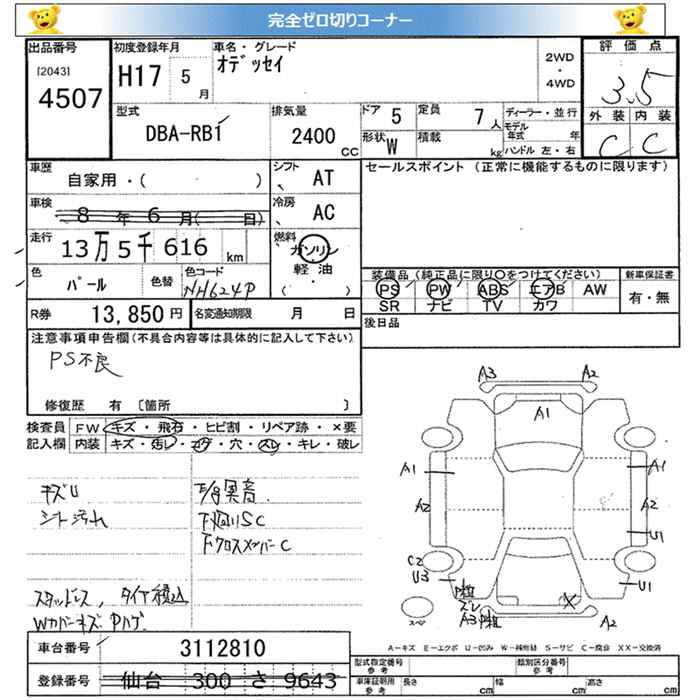 完全ゼロ切りコーナー
出品番号
[2043]
4507
初度登録年月
H17 5 月
車名・グレード
オデッセイ
2WD
・
4WD
評価点
3.5
外装 内装
C C
型式
DBA-RB1
排気量
2400 CC
ドア 5
定員 7 人
形状 W
積載 kg
ディーラー・並行
モデル年式 年
ハンドル 左・右
車歴
自家用・( )
シフト
AT
セールスポイント (正常に機能するものに限ります)
車検
8 年 6 月( 日)
冷房
AC
走行
13万 5千 616 km
燃料
ガソリン
軽油
( ・ )
色
パール
色替
色コード
NH624P
装備品(純正品に限り〇をつけてください)
PS PW ABS エアB AW
SR ナビ TV カワ
新車保証書
有・無
R券 13,850 円
名変通知期限 月 日
後日品
注意事項申告欄(不具合内容等は具体的に記入して下さい)
PS不良
修復歴 有 〔箇所 〕
検査員
記入欄
FW キズ・飛石・ヒビ割・リペア跡・×要
内装 キズ・汚レ・コゲ・穴・スレ・キレ・破レ
キズU
シート汚れ
下廻りSC
下クロスメンバーC
スタッドレス, タイヤ積込
Wカバーキズ Pハゲ
A3 A2
A1
A1 A1
A2 A2
U1
C2
U3 U1
ズレ
A3 X A2
スペア
A-キズ E-エクボ U-凹み W-補修跡 S-サビ C-腐食 XX-交換済
車台番号 3112810
登録番号 仙台 300 さ 9643
型式指定番号
参考
類別区分番号
参考
車庫証明用
参考
長さ cm 幅 cm 高さ cm